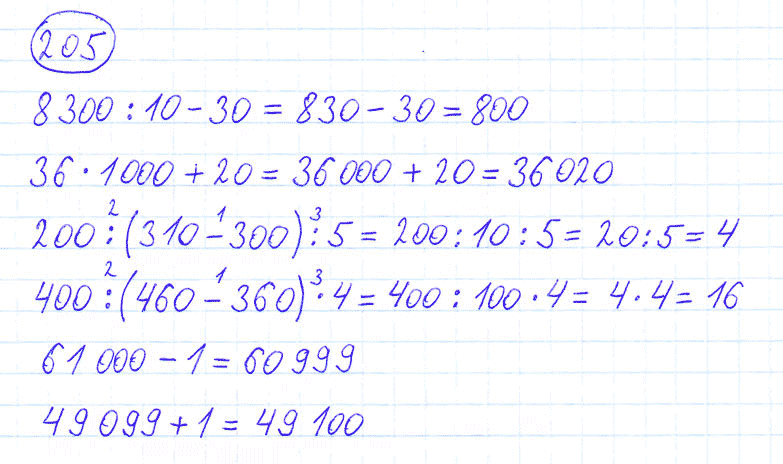 205
8300 : 10 - 30 = 830 - 30 = 800
36 · 1000 + 20 = 36 000 + 20 = 36 020
200 :² (310 -¹ 300) :³ 5 = 200 : 10 : 5 = 20 : 5 = 4
400 :² (460 -¹ 360) ·³ 4 = 400 : 100 · 4 = 4 · 4 = 16
61 000 - 1 = 60 999
49 099 + 1 = 49 100